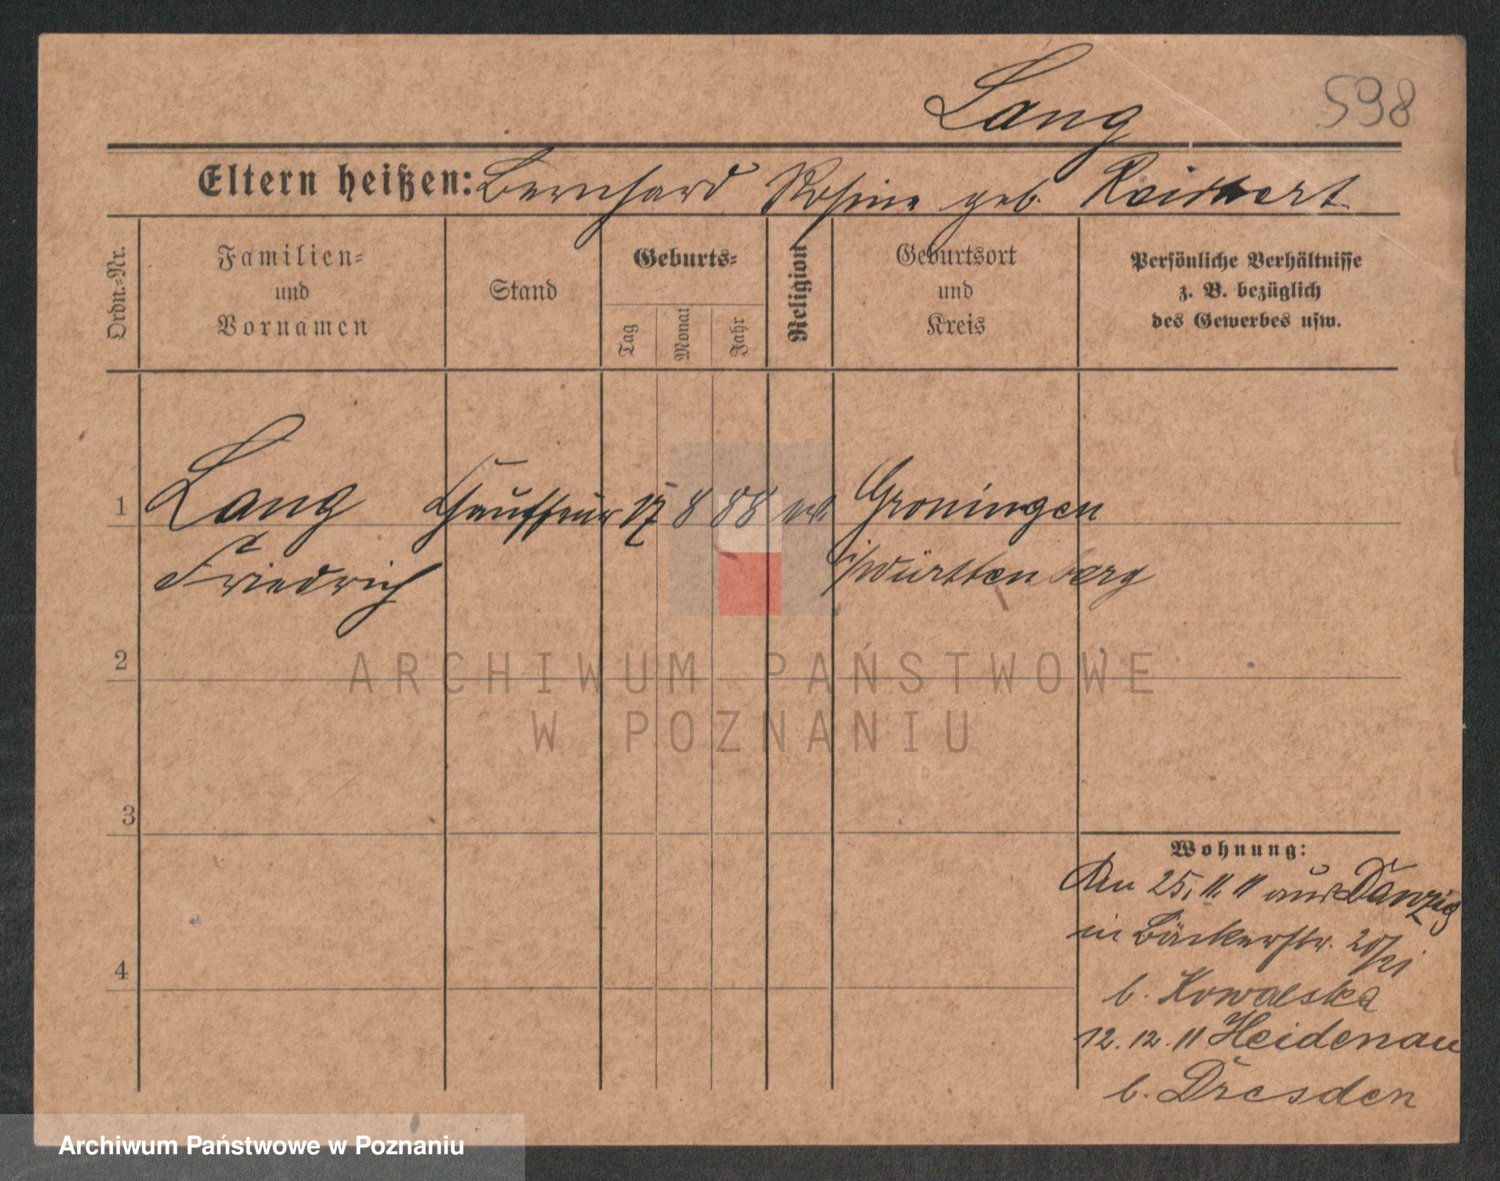 Lang 598
Eltern heißen: Bernhard Rosine geb.
Ordn.-Nr.
Familien-
und
Vornamen
Stand
Geburts-
Tag
Monat
Jahr
Religion
Geburtsort
und
Kreis
Persönliche Verhältnisse
z. B. bezüglich
des Gewerbes usw.
1 Lang Chauffeur 17 8 88 Groningen
Friedrich i/Württemberg
2
3
4
Wohnung:
Am 25. 11. 11 aus Danzig
in Bäckerstr.
b. Kowalska
12. 12. 11 Heidenau
b. Dresden
ARCHIWUM PAŃSTWOWE
W POZNANIU
Archiwum Państwowe w Poznaniu